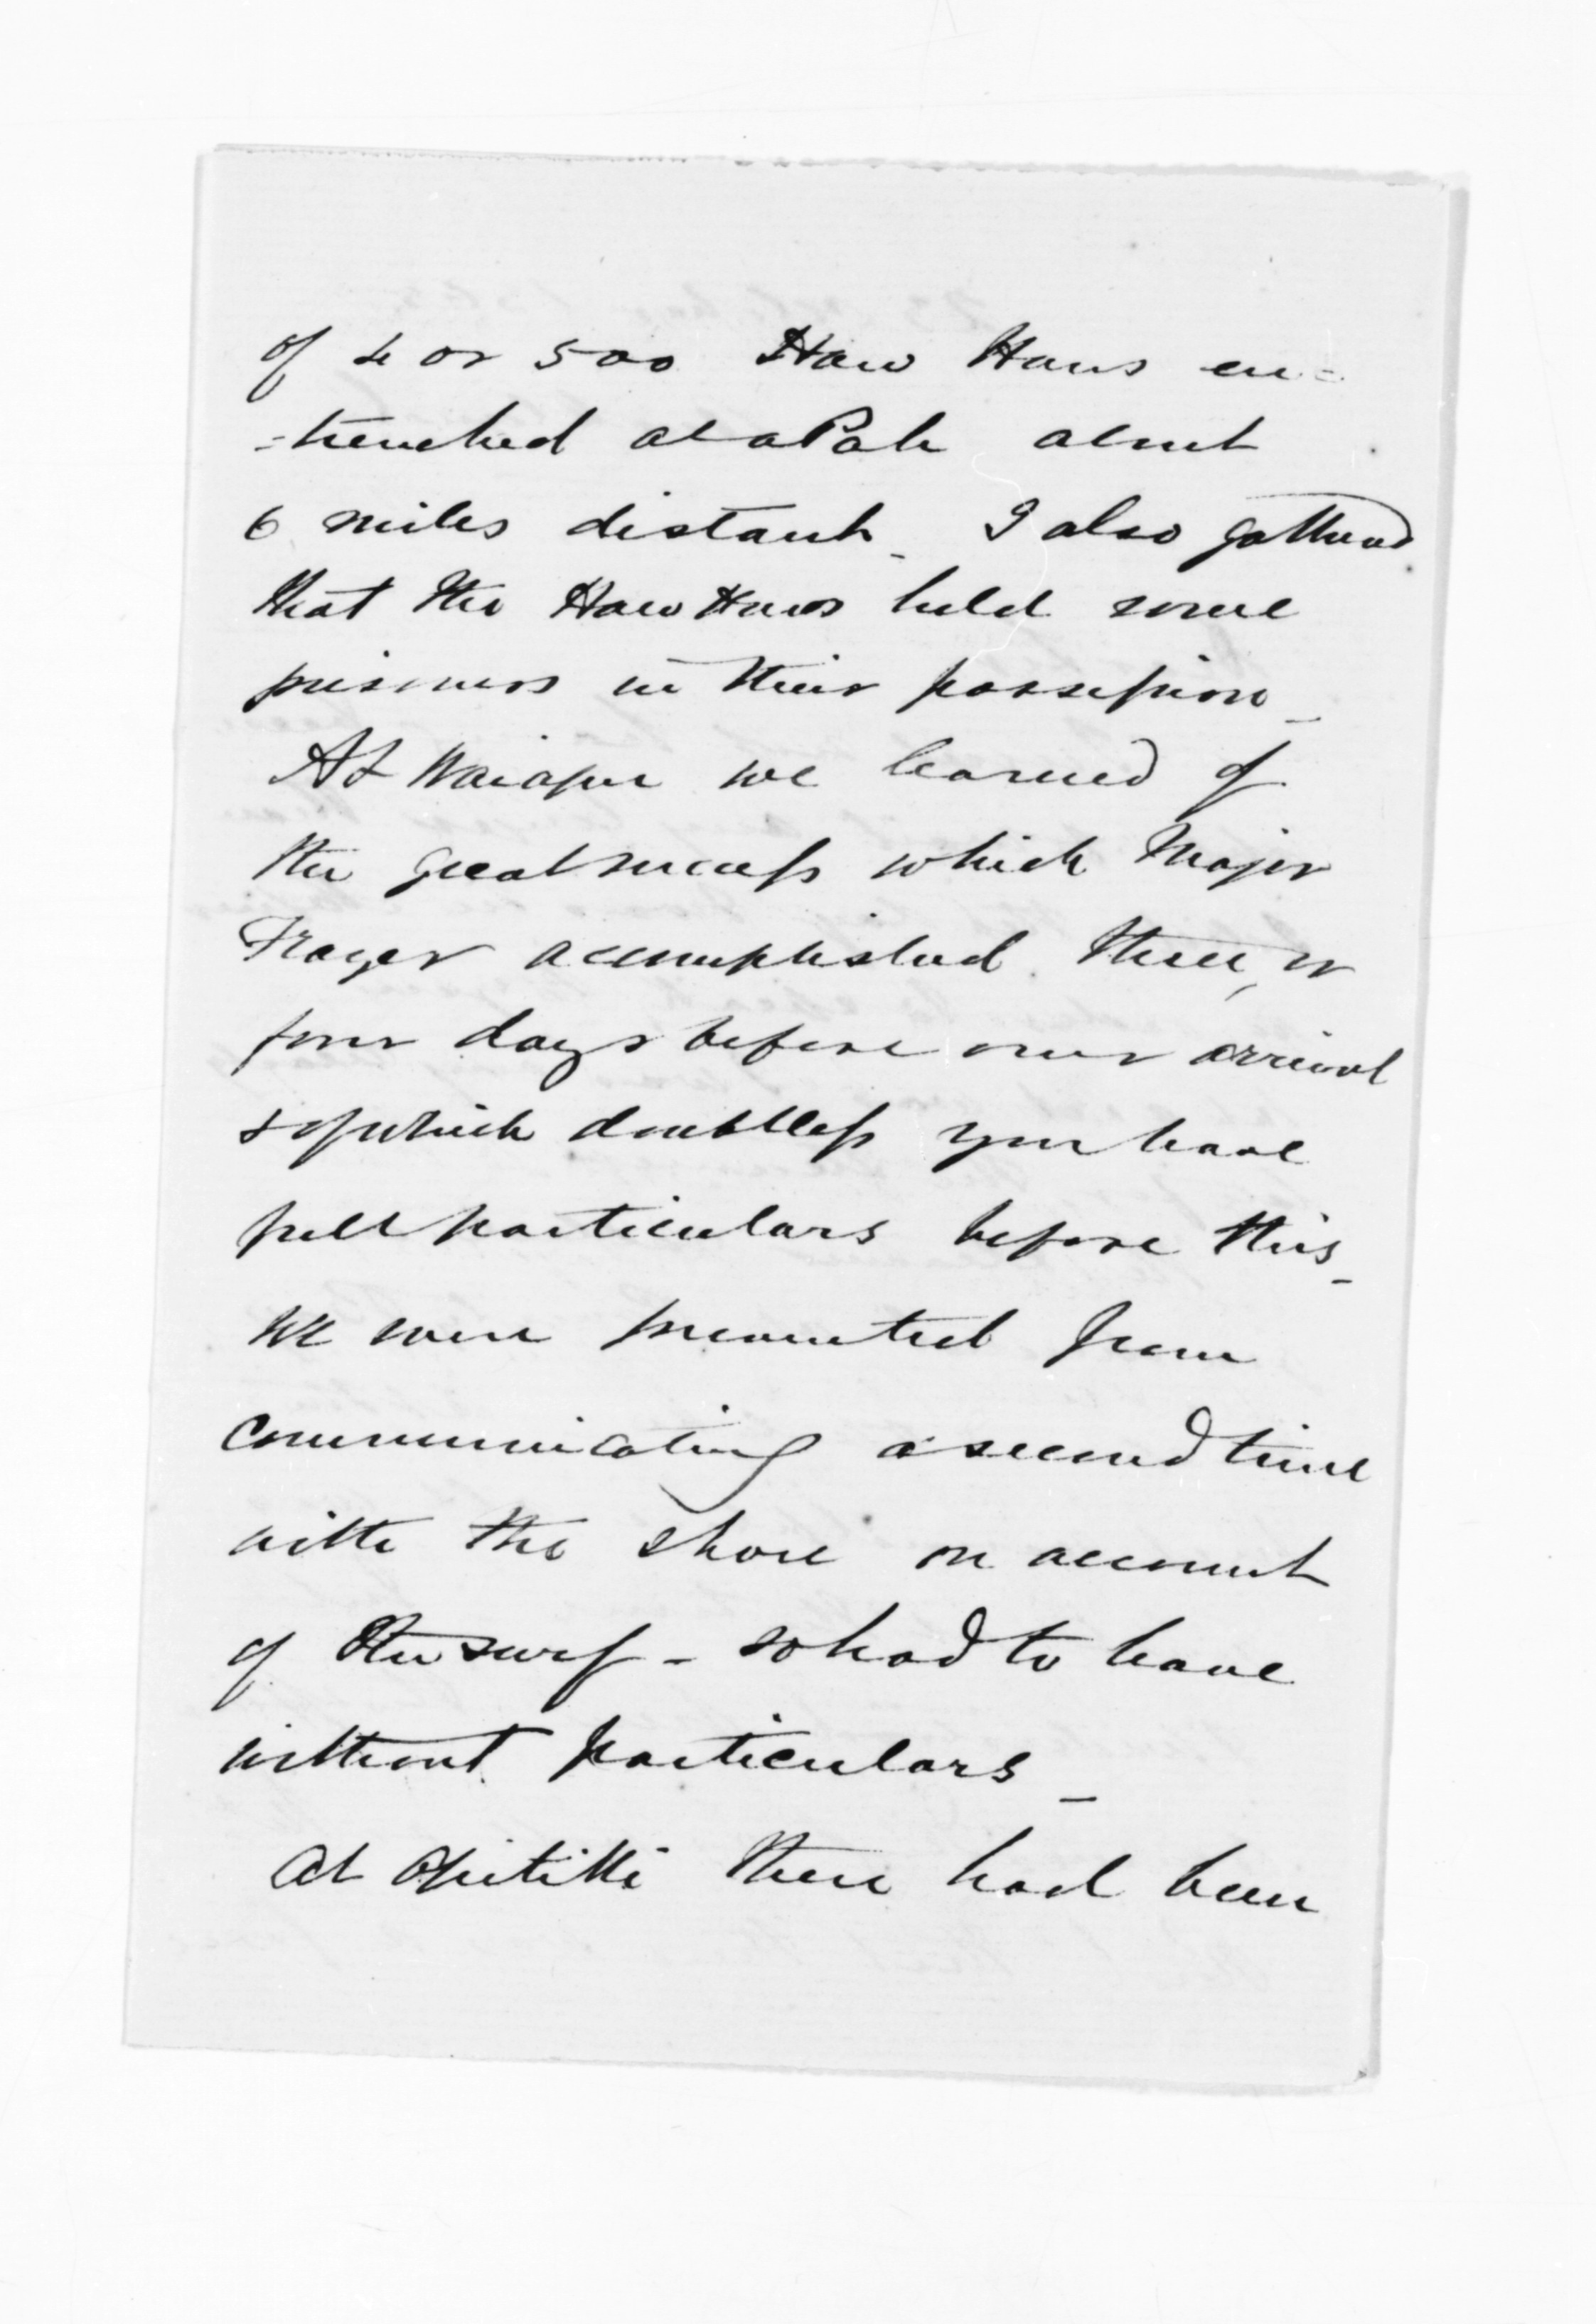 of 4 or 500 Haw Haws en=
=trenched at a Pah about
6 miles distant_ I also gathered
that the Haw Haws held some
prisoners in their possession_
At Waiapu we learned of
the great success which Major
Frazer accomplished three, or
four days before our arrival
& of which doubtless you have
full particulars before this_
We were prevented from
communicating a second time
with the shore on account
of the surf - so had to leave
without particulars_
At Opitiki there had been